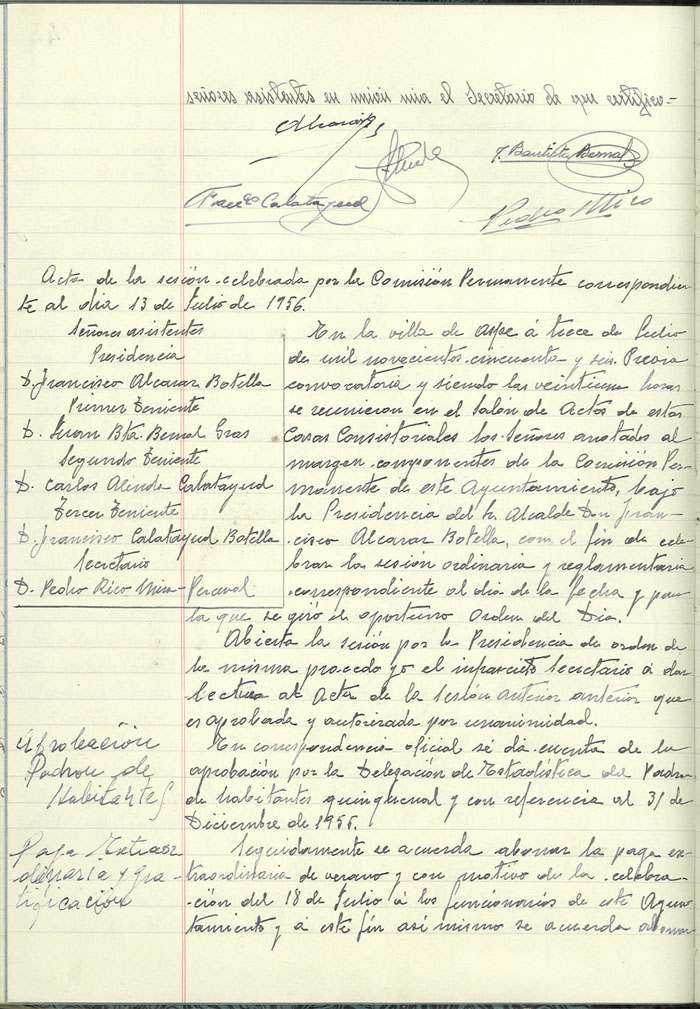 señores asistentes en unión mía el Secretario de que certifico.-
J. Bautista Bernal
Franco Calatayud
Pedro Rico
Acta de la sesión celebrada por la Comisión Permanente correspondien-
te al día 13 de Julio de 1956.
Señores asistentes
Presidencia
D. Francisco Alcaraz Botella
Primer Teniente
D. Juan Bta. Bernal Gras
Segundo Teniente
D. Carlos Alenda Calatayud
Tercer Teniente
D. Francisco Calatayud Botella
Secretario
D. Pedro Rico Mira-Perceval
En la villa de Aspe á trece de Julio
de mil novecientos cincuenta y seis. Previa
convocatoria y siendo las veintiuna horas
se reunieron en el Salón de Actos de estas
Casas Consistoriales los Señores anotados al
margen componentes de la Comisión Per-
manente de este Ayuntamiento, bajo
la Presidencia del Sr. Alcalde Don Fran-
cisco Alcaraz Botella, con el fin de cele-
brar la sesión ordinaria y reglamentaria
correspondiente al día de la fecha y para
la que se giró el oportuno Orden del Día.
Abierta la sesión por la Presidencia de orden de
la misma procedo yo el infrascrito Secretario á dar
lectura al Acta de la Sesión anterior anterior que
es aprobada y autorizada por unanimidad.
Aprobación
Padron de
Habitantes
En correspondencia oficial se dá cuenta de la
aprobación por la Delegación de Estadística del Padrón
de habitantes quinquenal y con referencia al 31 de
Diciembre de 1955.
Paga Extraor
dinaria y gra-
tificación
Seguidamente se acuerda abonar la paga ex-
traordinaria de verano y con motivo de la celebra-
ción del 18 de Julio á los funcionarios de este Ayun-
tamiento y á este fin así mismo se acuerda abonar